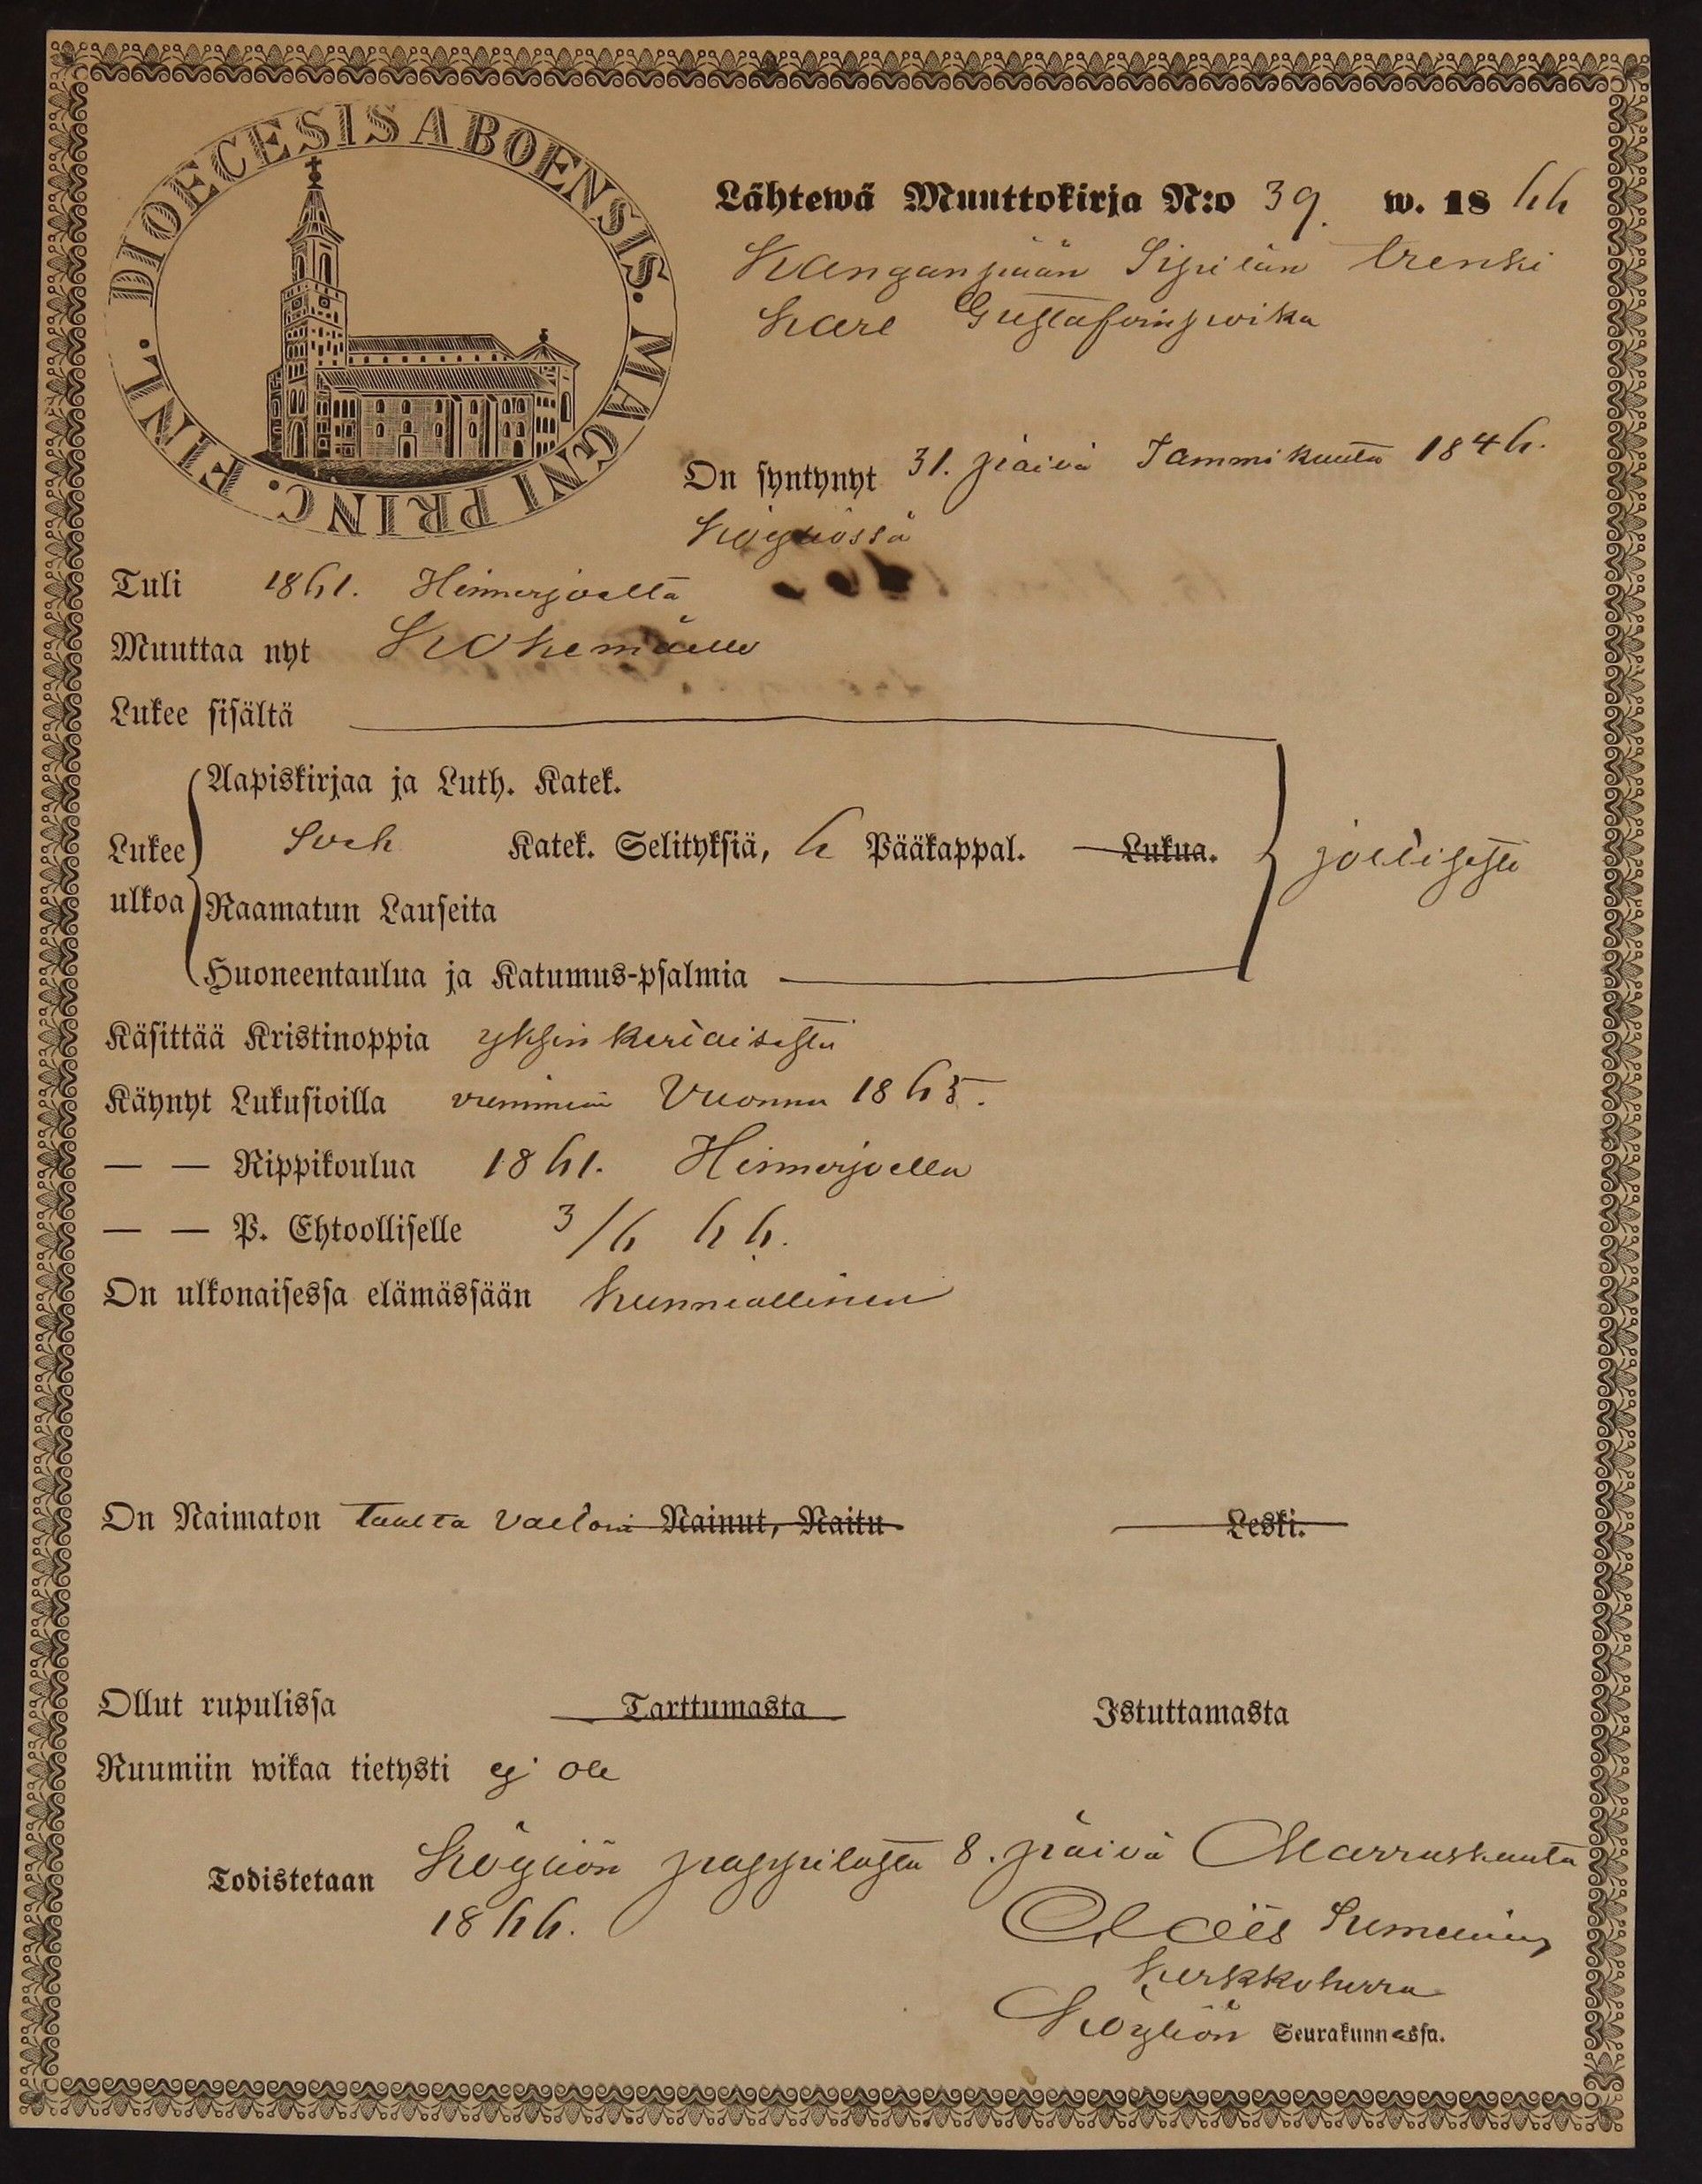 DIOECESIS ABOENSIS. MAGNI PRINC. FINL.
Lähtewä Muuttokirja N:o 39. w. 1866
Kanganpään Sipilän trenki
Karl Gustafinpoika
On syntynyt 31. päivä Tammikuuta 1846.
Köyliössä
Tuli 1861. Hinnerjoelta
Muuttaa nyt Kokemäelle
Lukee sisältä
Aapiskirjaa ja Luth. Katek.
Lukee ulkoa Sveb Katek. Selityksiä, 6 Pääkappal. Lukua. jollisesti
Raamatun Lauseita
Huoneentaulua ja Katumus-psalmia
Käsittää Kristinoppia yksinkertaisesti
Käynyt Lukusioilla viimmein Vuonna 1865.
— — Rippikoulua 1861. Hinnerjoella
— — P. Ehtoolliselle 3/6 66.
On ulkonaisessa elämässään kunniallinen
On Naimaton taalta vallom Nainut, Naitu Leski.
Ollut rupulissa Tarttumasta Istuttamasta
Ruumiin wikaa tietysti ej ole
Todistetaan Köyliön pappilasta 8. päivä Marraskuuta
1866.
Kirkkoherra
Köyliön Seurakunnassa.